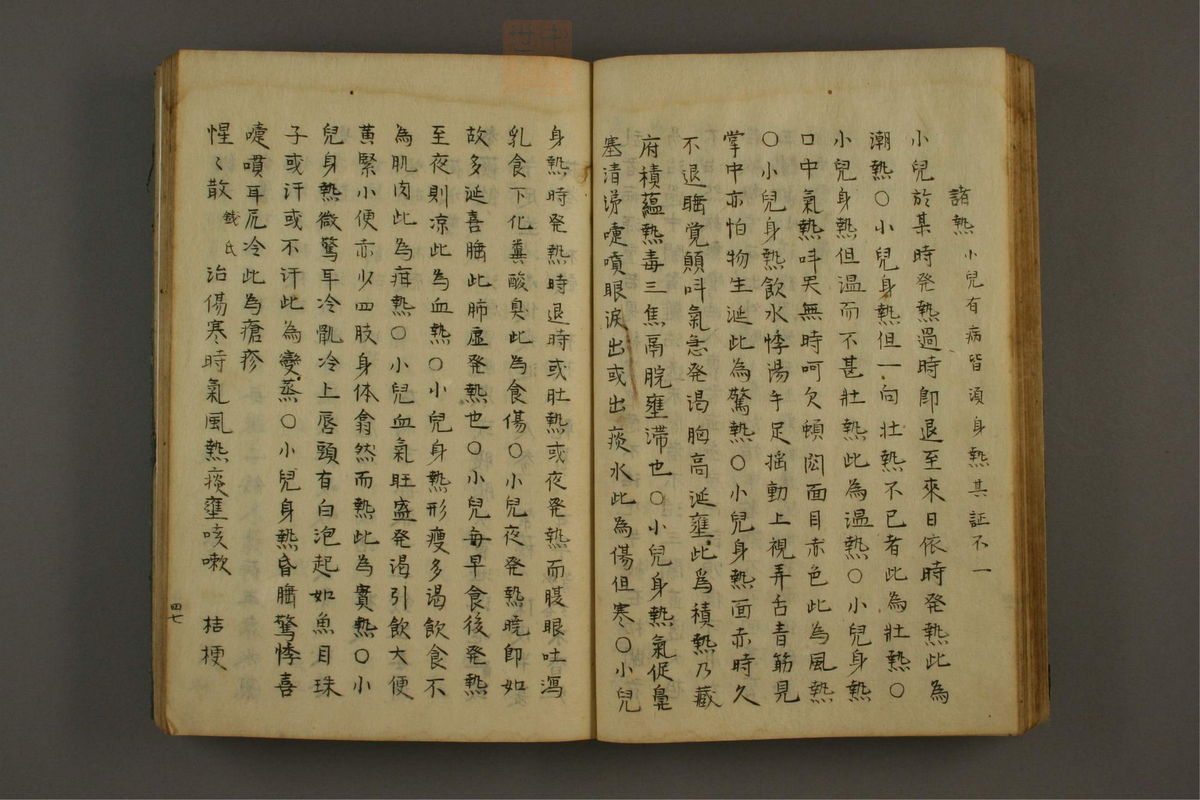 諸熱 小兒有病皆須身熱其証不一
小兒於某時発熱過時即退至來日依時発熱此為
潮熱○小兒身熱但一向壮熱不已者此為壮熱○
小兒身熱但温而不甚壮熱此為温熱○小兒身熱
口中氣熱呌哭無時呵欠頓悶面目赤色此為風熱
○小兒身熱飲水悸湯手足揺動上視弄舌青筋見
掌中亦怕物生涎此為驚熱○小兒身熱面赤時久
不退睡覚顛呌氣急発渇胸高涎壅此爲積熱乃藏
府積蘊熱毒三焦鬲脘壅滞也○小兒身熱氣促鼻
塞清涕嚏噴眼淚出或出痰水此為傷但寒○小兒
身熱時発熱時退時或肚熱或夜発熱而腹眼吐瀉
乳食下化糞酸臭此為食傷○小兒夜発熱晩即如
故多涎喜睡此肺虚発熱也○小兒毎早食後発熱
至夜則凉此為血熱○小兒身熱形瘦多渇飲食不
為肌肉此為疳熱○小兒血氣旺盛発渇引飲大便
黄緊小便亦少四肢身体翕然而熱此為實熱○小
兒身熱微驚耳冷骩冷上唇頭有白泡起如魚目珠
子或汗或不汗此為變蒸○小兒身熱昏睡驚悸喜
嚏噴耳尻冷此為瘡疹
惺〻散 銭氏 治傷寒時氣風熱痰壅咳嗽 桔梗
四七